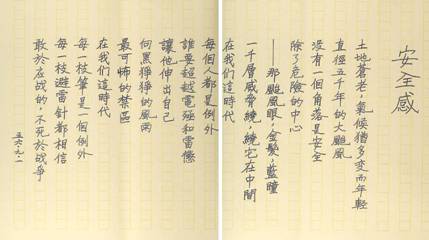 安全感
土地蒼老，氣候猶多變而年輕
直徑五千年的大颱風
沒有一個角落是安全
除了危險的中心
——那颱風眼，金髮，藍瞳
一千層威脅繞，繞它在中間
在我們這時代
每個人都是例外
誰要超越電殛和雷懲
讓他伸出自己
向黑獰獰的風雨
最可怖的禁區
在我們這時代
每一枝筆是一個例外
每一枝避雷針都相信
敢於应战的，不死於战爭
五六.九.二